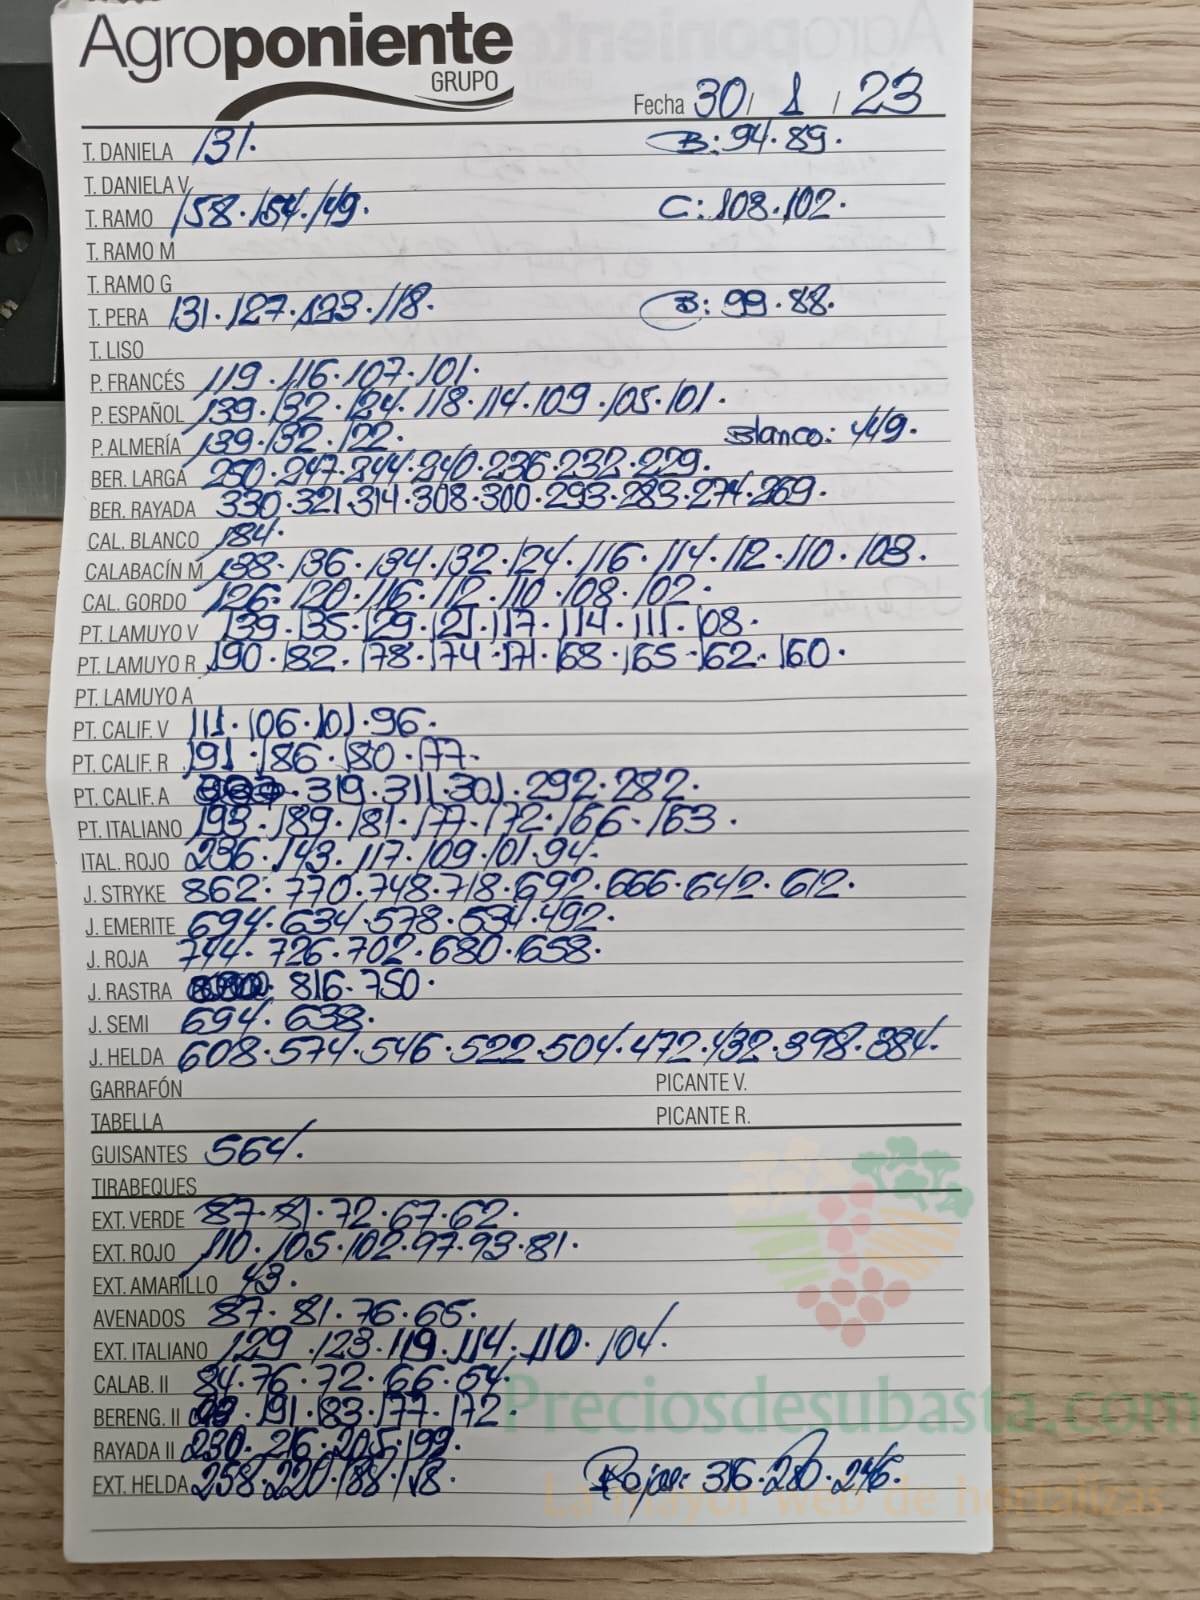 Agroponiente
GRUPO
Fecha 30/ 1 / 23
T. DANIELA 131. B: 94. 89.
T. DANIELA V
T. RAMO 158. 154. 149. C: 108. 102.
T. RAMO M
T. RAMO G
T. PERA 131. 127. 123. 118. B: 99. 88.
T. LISO
P. FRANCÉS 119. 116. 107. 101.
P. ESPAÑOL 139. 132. 124. 118. 114. 109. 105. 101.
P. ALMERÍA 139. 132. 122. Blanco: 449.
BER. LARGA 250. 247. 244. 240. 236. 232. 229.
BER. RAYADA 330. 321. 314. 308. 300. 293. 283. 274. 269.
CAL. BLANCO 184.
CALABACÍN M 138. 136. 134. 132. 124. 116. 114. 112. 110. 108.
CAL. GORDO 126. 120. 116. 112. 110. 108. 102.
PT. LAMUYO V 139. 135. 129. 121. 117. 114. 111. 108.
PT. LAMUYO R 190. 182. 178. 174. 171. 168. 165. 162. 160.
PT. LAMUYO A
PT. CALIF. V 111. 106. 101. 96.
PT. CALIF. R 191. 186. 180. 177.
PT. CALIF. A 319. 311. 301. 292. 282.
PT. ITALIANO 193. 189. 181. 177. 172. 166. 163.
ITAL. ROJO 236. 143. 117. 109. 101. 94.
J. STRYKE 862. 770. 748. 718. 692. 666. 642. 612.
J. EMERITE 694. 634. 578. 534. 492.
J. ROJA 744. 726. 702. 680. 658.
J. RASTRA 816. 750.
J. SEMI 694. 638.
J. HELDA 608. 574. 546. 522. 504. 472. 432. 398. 384.
GARRAFÓN PICANTE V.
TABELLA PICANTE R.
GUISANTES 564.
TIRABEQUES
EXT. VERDE 87. 81. 72. 67. 62.
EXT. ROJO 110. 105. 102. 97. 93. 81.
EXT. AMARILLO 43.
AVENADOS 87. 81. 76. 65.
EXT. ITALIANO 129. 123. 119. 114. 110. 104.
CALAB. II 84. 76. 72. 66. 54.
Preciosdesubasta.com
BERENG. II 191. 183. 177. 172.
RAYADA II 230. 216. 205. 199.
EXT. HELDA 258. 220. 188. 118. Rojas: 316. 280. 246.
La mayor web de hortalizas